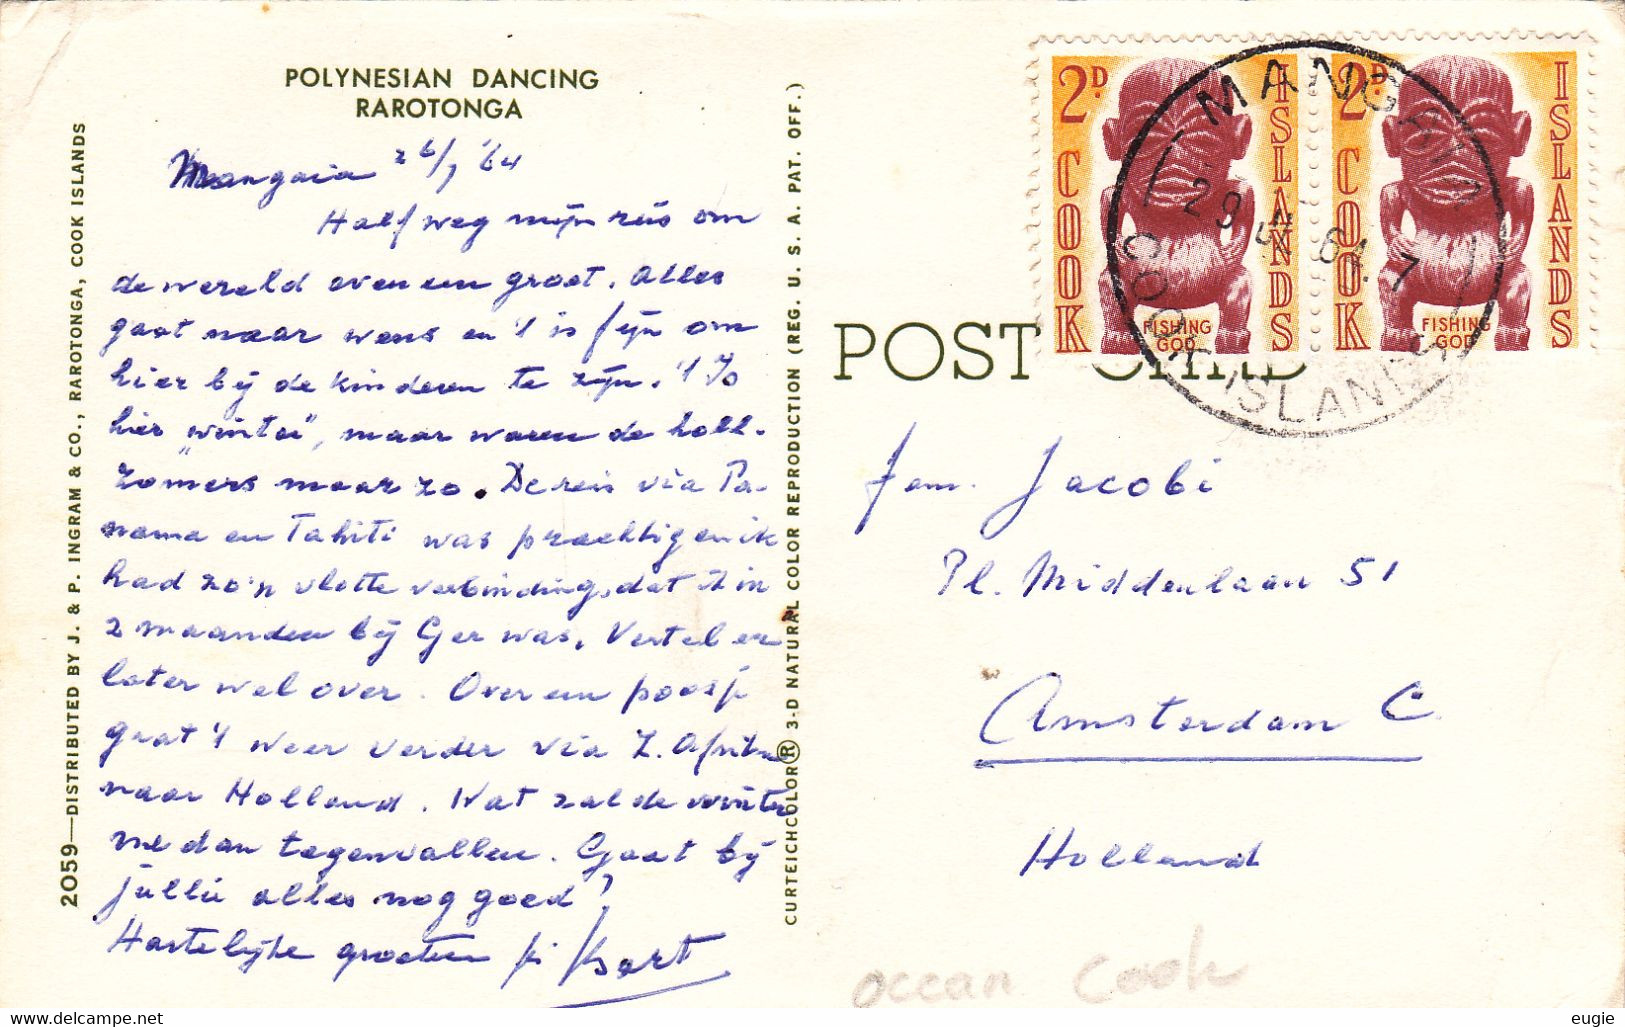 POLYNESIAN DANCING
RAROTONGA
Mangaia 26/7 '64
Halfweg mijn reis om
de wereld even een groet. Alles
gaat naar wens en 't is fijn om
hier bij de kinderen te zijn. 't Is
hier "winter", maar waren de holl.
zomers maar zo. De reis via Pa-
nama en Tahiti was prachtig en ik
had zo'n vlotte verbinding, dat ik in
2 maanden bij Ger was. Vertel er
later wel over. Over een poosje
gaat 't weer verder via Z. Afrika
naar Holland. Wat zal de winter
me dan tegenvallen. Gaat bij
jullie alles nog goed?
Hartelijke groeten Bart
2059—DISTRIBUTED BY J. & P. INGRAM & CO., RAROTONGA, COOK ISLANDS
CURTEICHCOLOR® 3-D NATURAL COLOR REPRODUCTION (REG. U. S. A. PAT. OFF.)
POST CARD
2D. COOK ISLANDS
FISHING
GOD
2D. COOK ISLANDS
FISHING
GOD
MANGAIA
COOK ISLANDS
Fam. Jacobi
Pl. Middenlaan 51
Amsterdam C.
Holland
occan Cook
eugie
www.delcampe.net